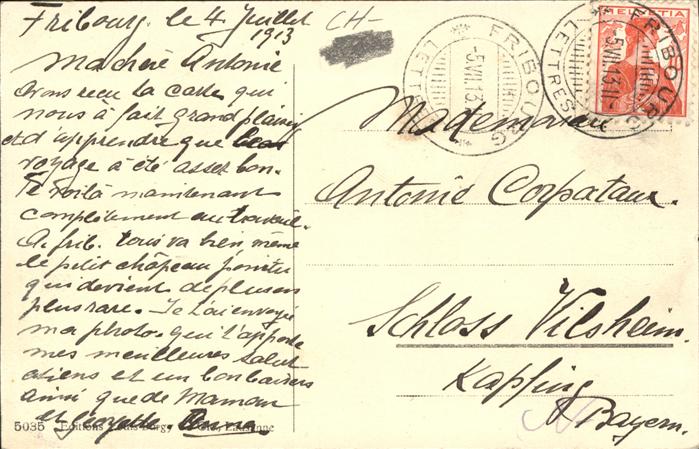 Fribourg, le 4 Juillet
1913
CH-
Ma chère Antonie
Avons recu la carte qui
nous à fait grand plaisir
et d'apprendre que
voyage à été assez bon.
Te voilà maintenant
complètement au travail.
A frib. tous va bien, même
le petit châpeau pointu
qui devient de plus en
plus rare. Je t'ai envoyé
ma photo. qui t'apporte
mes meilleures salut
ations et un bon baisers
ainsi que de Maman
et
5035 Editions Louis Burgy & Cie., Lausanne
Mademoiselle
Antonie Corpataux.
Schloss Vilsheim.
Kapfing
Bayern.
HELVETIA
FRIBOURG
-5.VII.13.11-
LETTRES
FRIBOURG
-5.VII.13.
LETT